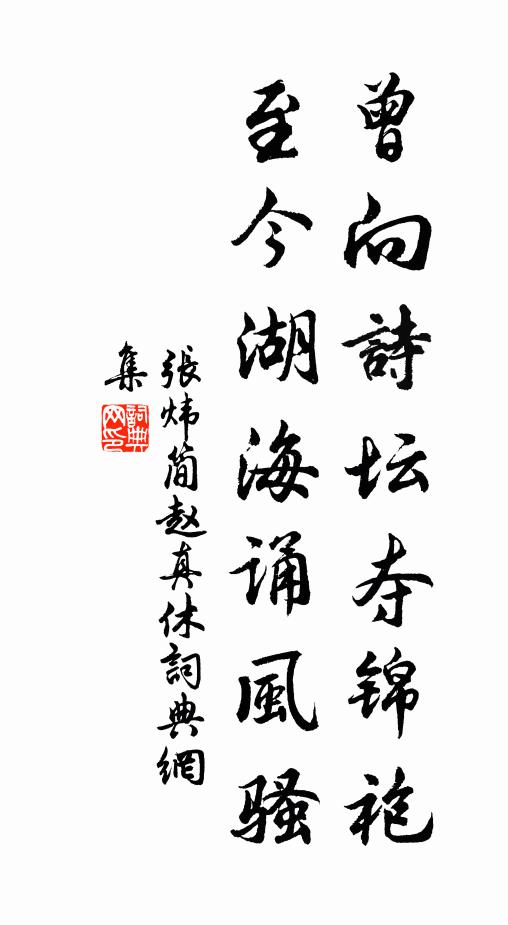 曾向詩坛夺锦袍
至今湖海诵風骚
張炜简赵真休詞典網
集
詞典网印